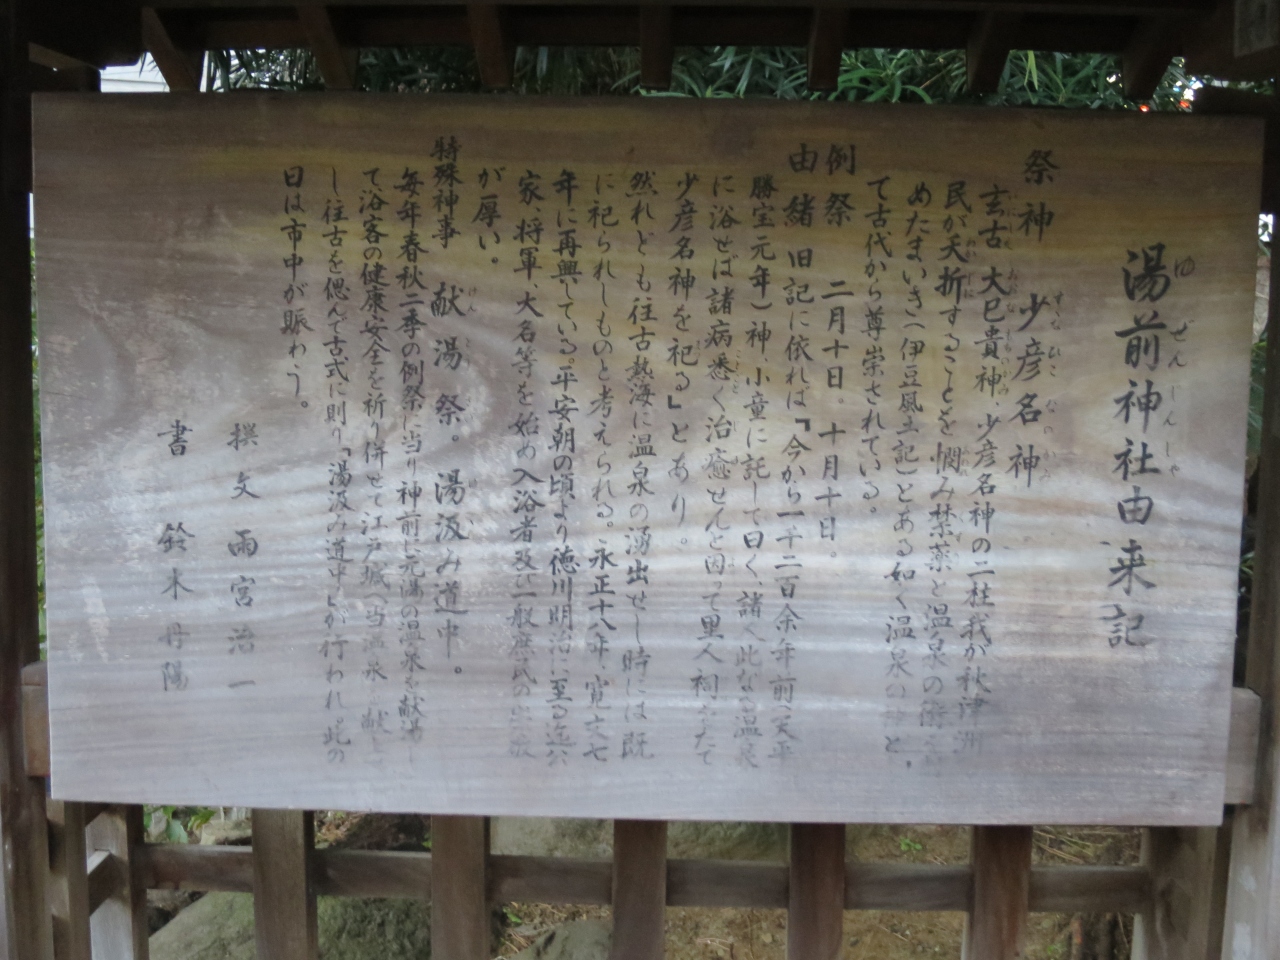 湯前神社由来記
祭神 少彦名神
玄古大巳貴神、少彦名神の二柱我が秋津洲
民が夭折することを憫み禁薬と温泉の術を
めたまいき(伊豆風土記)とある如く温泉の神と、
て古代から尊崇されている。
例祭 二月十日。十月十日。
由緒 旧記に依れば「今から一千二百余年前(天平
勝宝元年)神、小童に託して曰く、諸人此なる温泉
に浴せば諸病悉く治癒せんと因って里人祠をたて
少彦名神を祀る」とあり。
然れども往古熱海に温泉の湧出せし時には既
に祀られしものと考えられる。永正十八年、寛文七
年に再興している。平安朝の頃より徳川明治に至る迄公
家、将軍、大名等を始め入浴者及江一般庶民の
が厚い。
特殊神事 献湯祭。湯汲み道中。
毎年春秋二季の例祭に当り神前に元湯の温泉を献湯し
て浴客の健康安全を祈り併せて江戸城へ当温泉を献上
し往古を偲んで古式に則り「湯汲み道中」が行われ。此の
日は市中が賑わう。
撰文 雨宮治一
書 鈴木丹陽